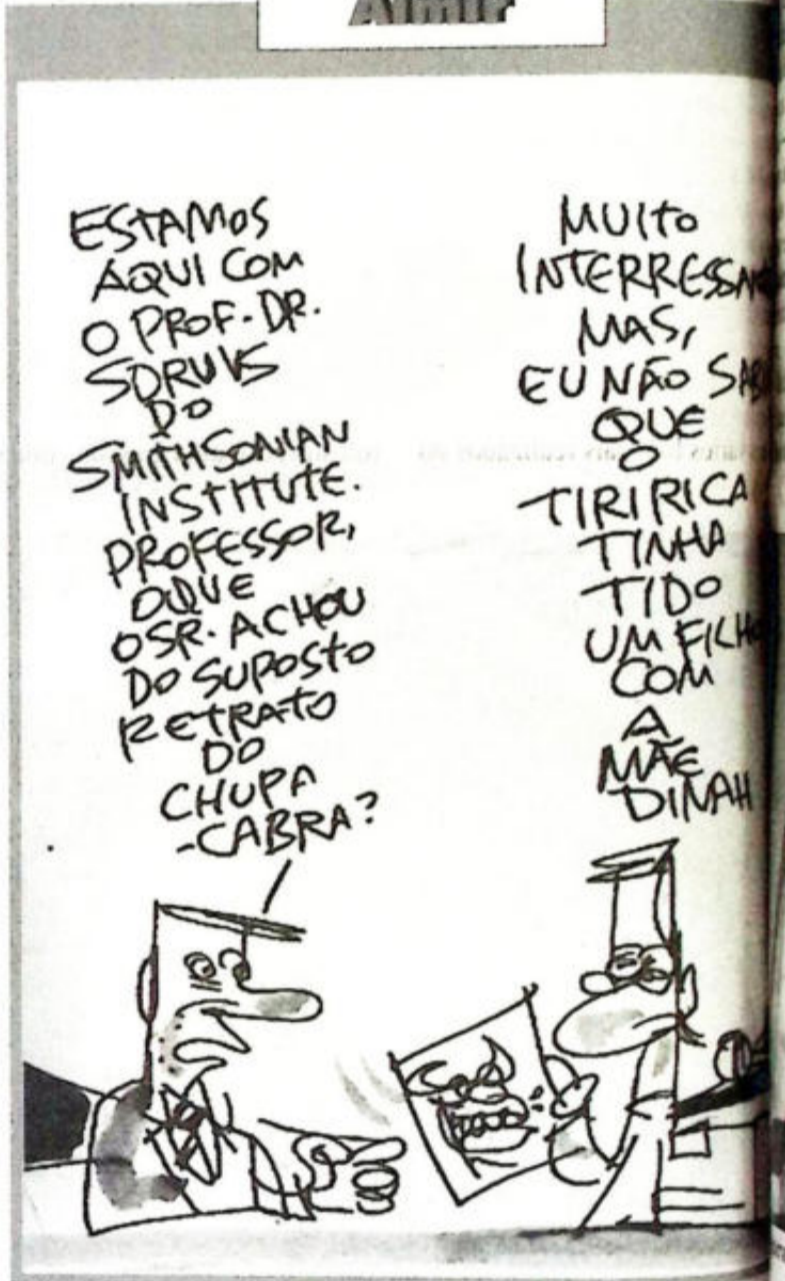 Almir
ESTAMOS
AQUI COM
O PROF. DR.
SORUVS
DO
SMITHSONIAN
INSTITUTE.
PROFESSOR,
OQUE
O SR. ACHOU
DO SUPOSTO
RETRATO
DO
CHUPA
-CABRA?
MUITO
MAS,
EU NÃO
QUE
O
TIRIRICA
TINHA
TIDO
UM FILHO
COM
A
MÃE
DINAH